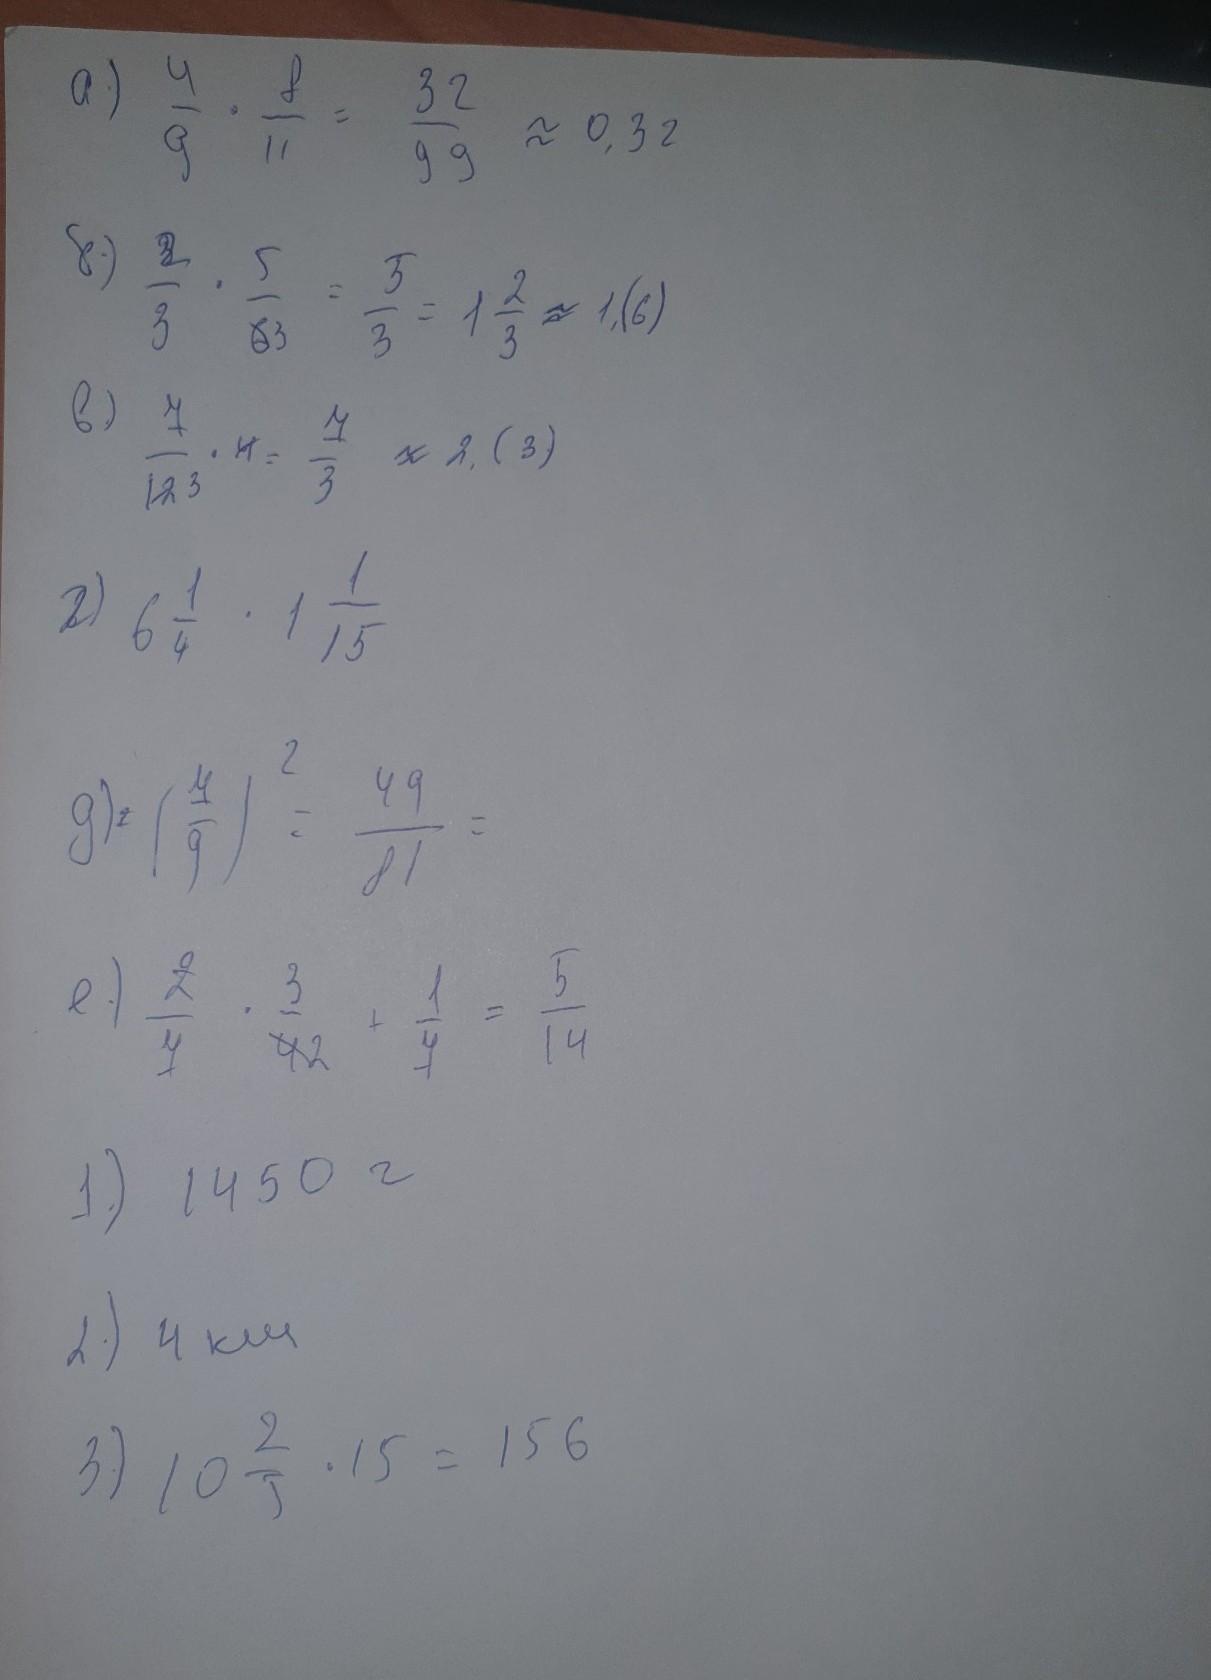 а.) 4/9 · 8/11 = 32/99 ≈ 0,32
б.) 2/3 · 5/63 = 5/3 = 1 2/3 ≈ 1,(6)
в) 7/123 · 4 = 7/3 ≈ 2,(3)
г) 6 1/4 · 1 1/15
д) = (7/9)² = 49/81 =
е.) 2/7 · 3/42 + 1/7 = 5/14
1.) 1450 г
2.) 4 км
3.) 10 2/5 · 15 = 156